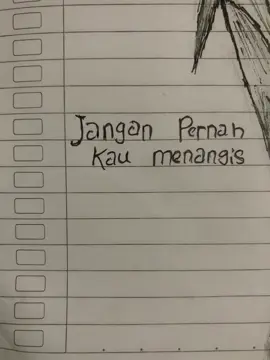 Jangan Pernah
Kau menangis